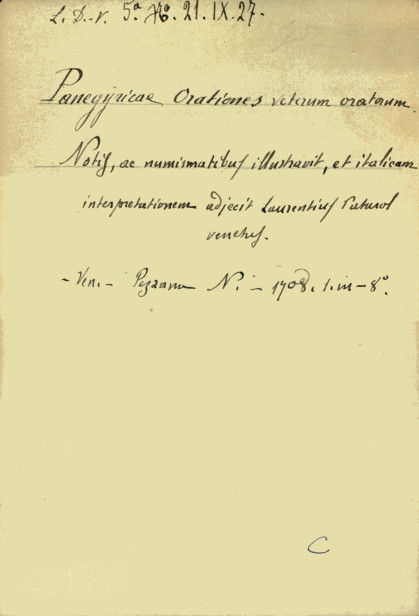 L. D. V. 5ª 21. IX. 27.
Panegyricae Orationes veterum oratorum.
Notis, ac numismatibus illustravit, et italicam
interpretationem adjecit Laurentius Patarol
venetus.
- Ven. - N. - 1708. - 8°.
C